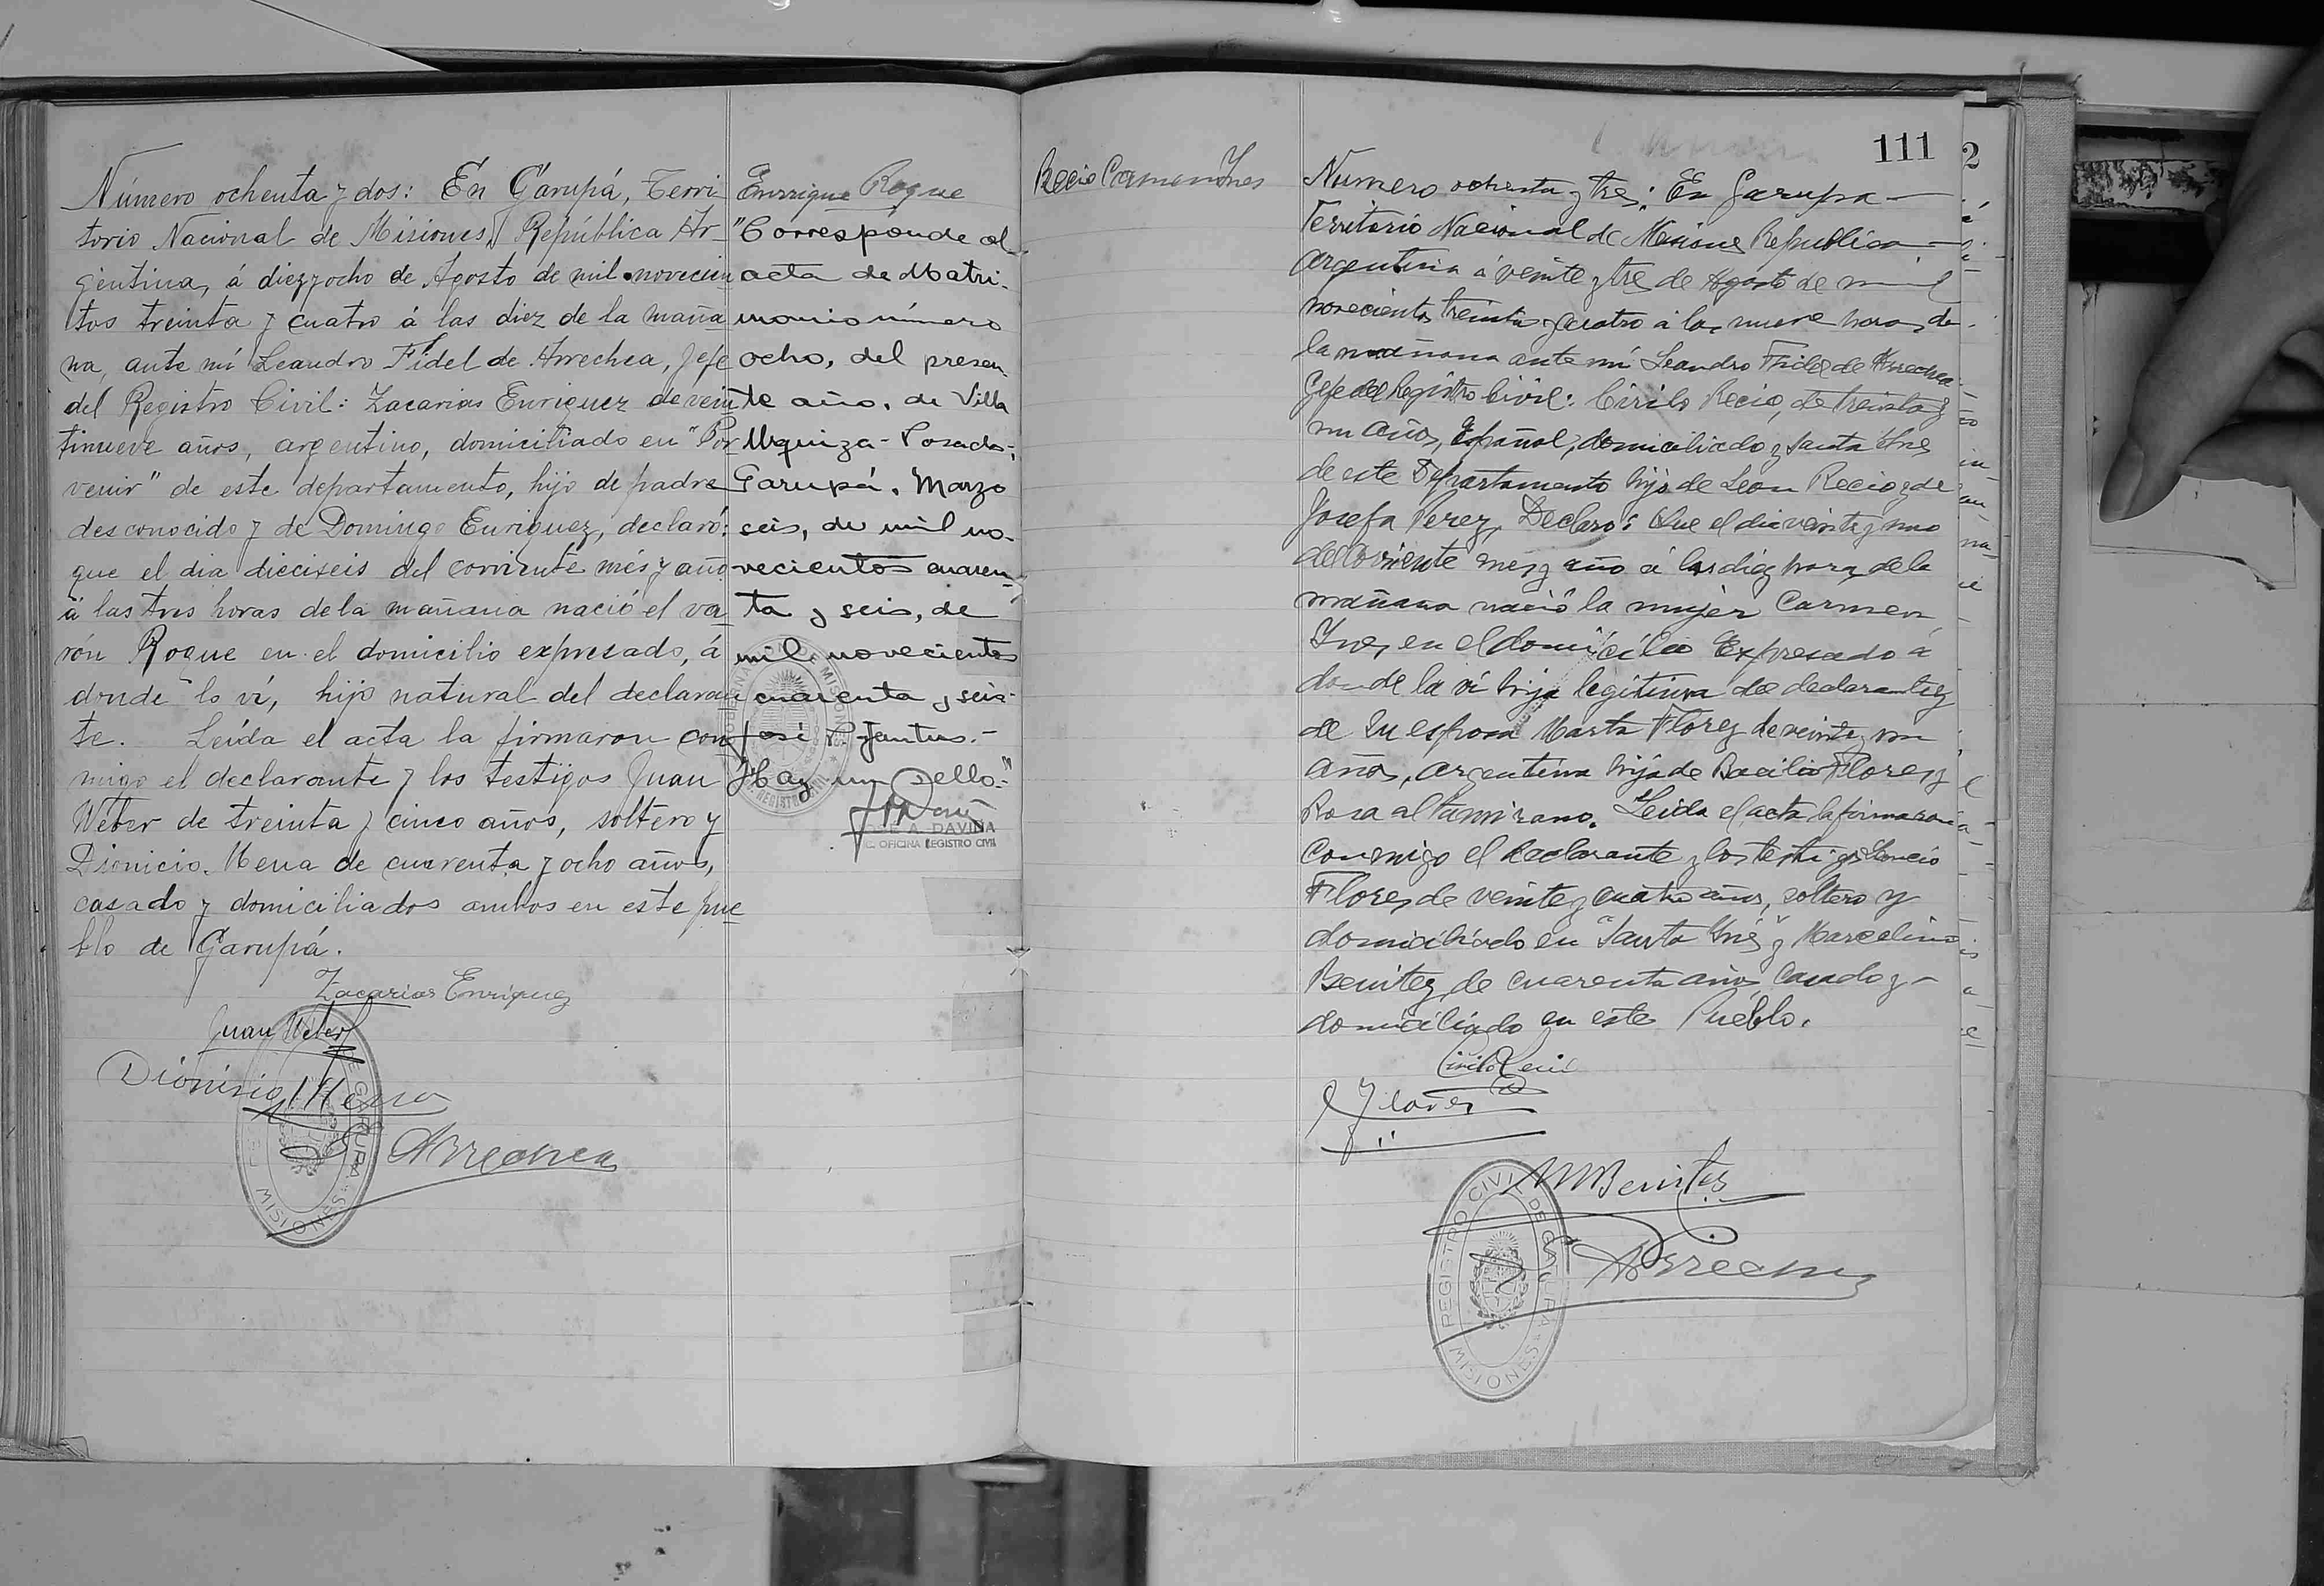 Número ochenta y dos: En Garupá, Terri
torio Nacional de Misiones, República Ar-
gentina, á diez y ocho de Agosto de mil novecien
tos treinta y cuatro á las diez de la maña
na, ante mí Leandro Fidel de Arrechea, Jefe
del Registro Civil: Zacarias Enriquez de vein
tinueve años, argentino, domiciliado en "Por
venir" de este departamento, hijo de padre
desconocido y de Domingo Enriquez, declaró:
que el dia dieciseis del corriente més y año
á las tres horas de la mañana nació el va
rón Roque en el domicilio expresado, á
donde lo ví, hijo natural del declaran
te. Leida el acta la firmaron con
migo el declarante y los testigos Juan
Weber de treinta y cinco años, soltero y
Dionicio Mena de cuarenta y ocho años,
casado y domiciliados ambos en este pue
blo de Garupá.
Zacarias Enriquez
Juan Weber
Dionisio Mena
Arrechea
DE GARUPA
MISIONES
Enrrique Roque
"Corresponde al
acta de Matri-
monio número
ocho, del presen
te año, de Villa
Urquiza - Posadas-
Garupá, Marzo
seis, de mil no-
vecientos cuaren-
ta y seis, de
mil novecientos
cuarenta y seis-
José P. Santus.-
Hay un Sello."
MISIONES
REGISTRO CIVIL
JOSE A. DAVIÑA
OFICINA REGISTRO CIVIL
111
2
Recio Carmen Ynes
Numero ochenta y tres: En Garupa
Territorio Nacional de Misiones Republica
Argentina á veinte y tres de Agosto de mil
novecientos treinta y cuatro á las nueve horas de
la mañana ante mí Leandro Fidel de Arrechea
Gefe del Registro Civil: Cirilo Recio, de treinta y
un años, Español, domiciliado y Santa Ines
de este Departamento hijo de Leon Recio y de
Josefa Perez, Declaro: Que el dia veinte y uno
del corriente mes y año á las diez horas de la
mañana nació la mujer Carmen
Ynes, en el domicilio Expresado á
donde la ví hija legitima del declarante y
de su esposa Marta Florez de veinte y un
años, argentina hija de Bacilio Flores y
Rosa altamirano. Leida el acta la firmaron
conmigo el declarante y los testigos
Flores de veinte y cuatro años, soltero y
domiciliado en "Santa Ynés" y Marcelino
Benitez de cuarenta años Casado y
domiciliado en este Pueblo.
Cirilo Recio
Flores
M Benites
Arrechea
REGISTRO CIVIL DE GARUPA
MISIONES